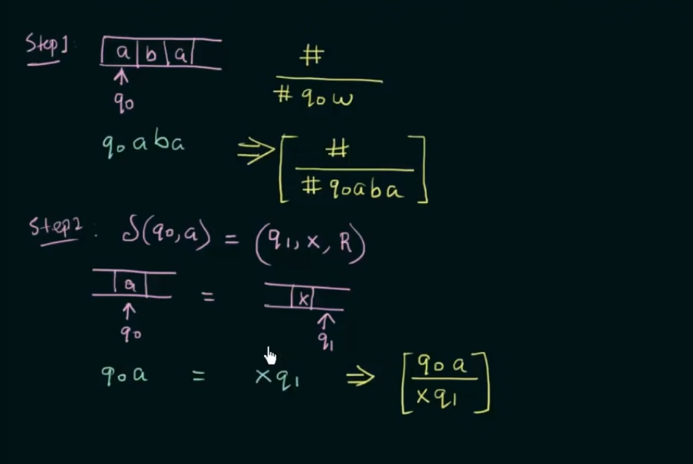 Step1: a b a
q₀
#
# q₀ w
q₀ a b a ⇒ [ # / # q₀ a b a ]
Step2: δ(q₀, a) = (q₁, x, R)
a = x
q₀ q₁
q₀ a = x q₁ ⇒ [ q₀ a / x q₁ ]